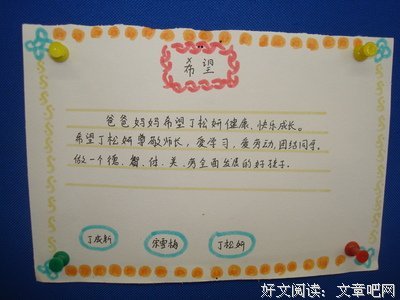 希望
爸爸妈妈希望丁松妍健康、快乐成长。
希望丁松妍尊敬师长，爱学习，爱劳动，团结同学。
做一个德、智、体、美、劳全面发展的好孩子。
丁成新 宋雪梅 丁松妍
好文阅读：文章吧网